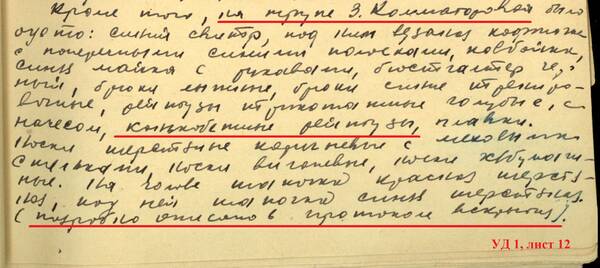 Кроме того, на трупе З. Колмогоровой было
одето: синий свитр, под ним вязаная кофточка
с поперечными синими полосками, ковбойка,
синяя майка с рукавами, бюстгалтер чер-
ный, брюки лыжные, брюки синие трениро-
вочные, рейтузы трикотажные голубые, с
начесом, конькобежные рейтузы, плавки.
Носки шерстяные коричневые с меховыми
стельками, носки вигоневые, носки хлбумаж-
ные. На голове шапочка красная шерстя-
ная, под ней шапочка синяя шерстяная.
(подробно описано в протоколе вскрытия).
УД 1, лист 12